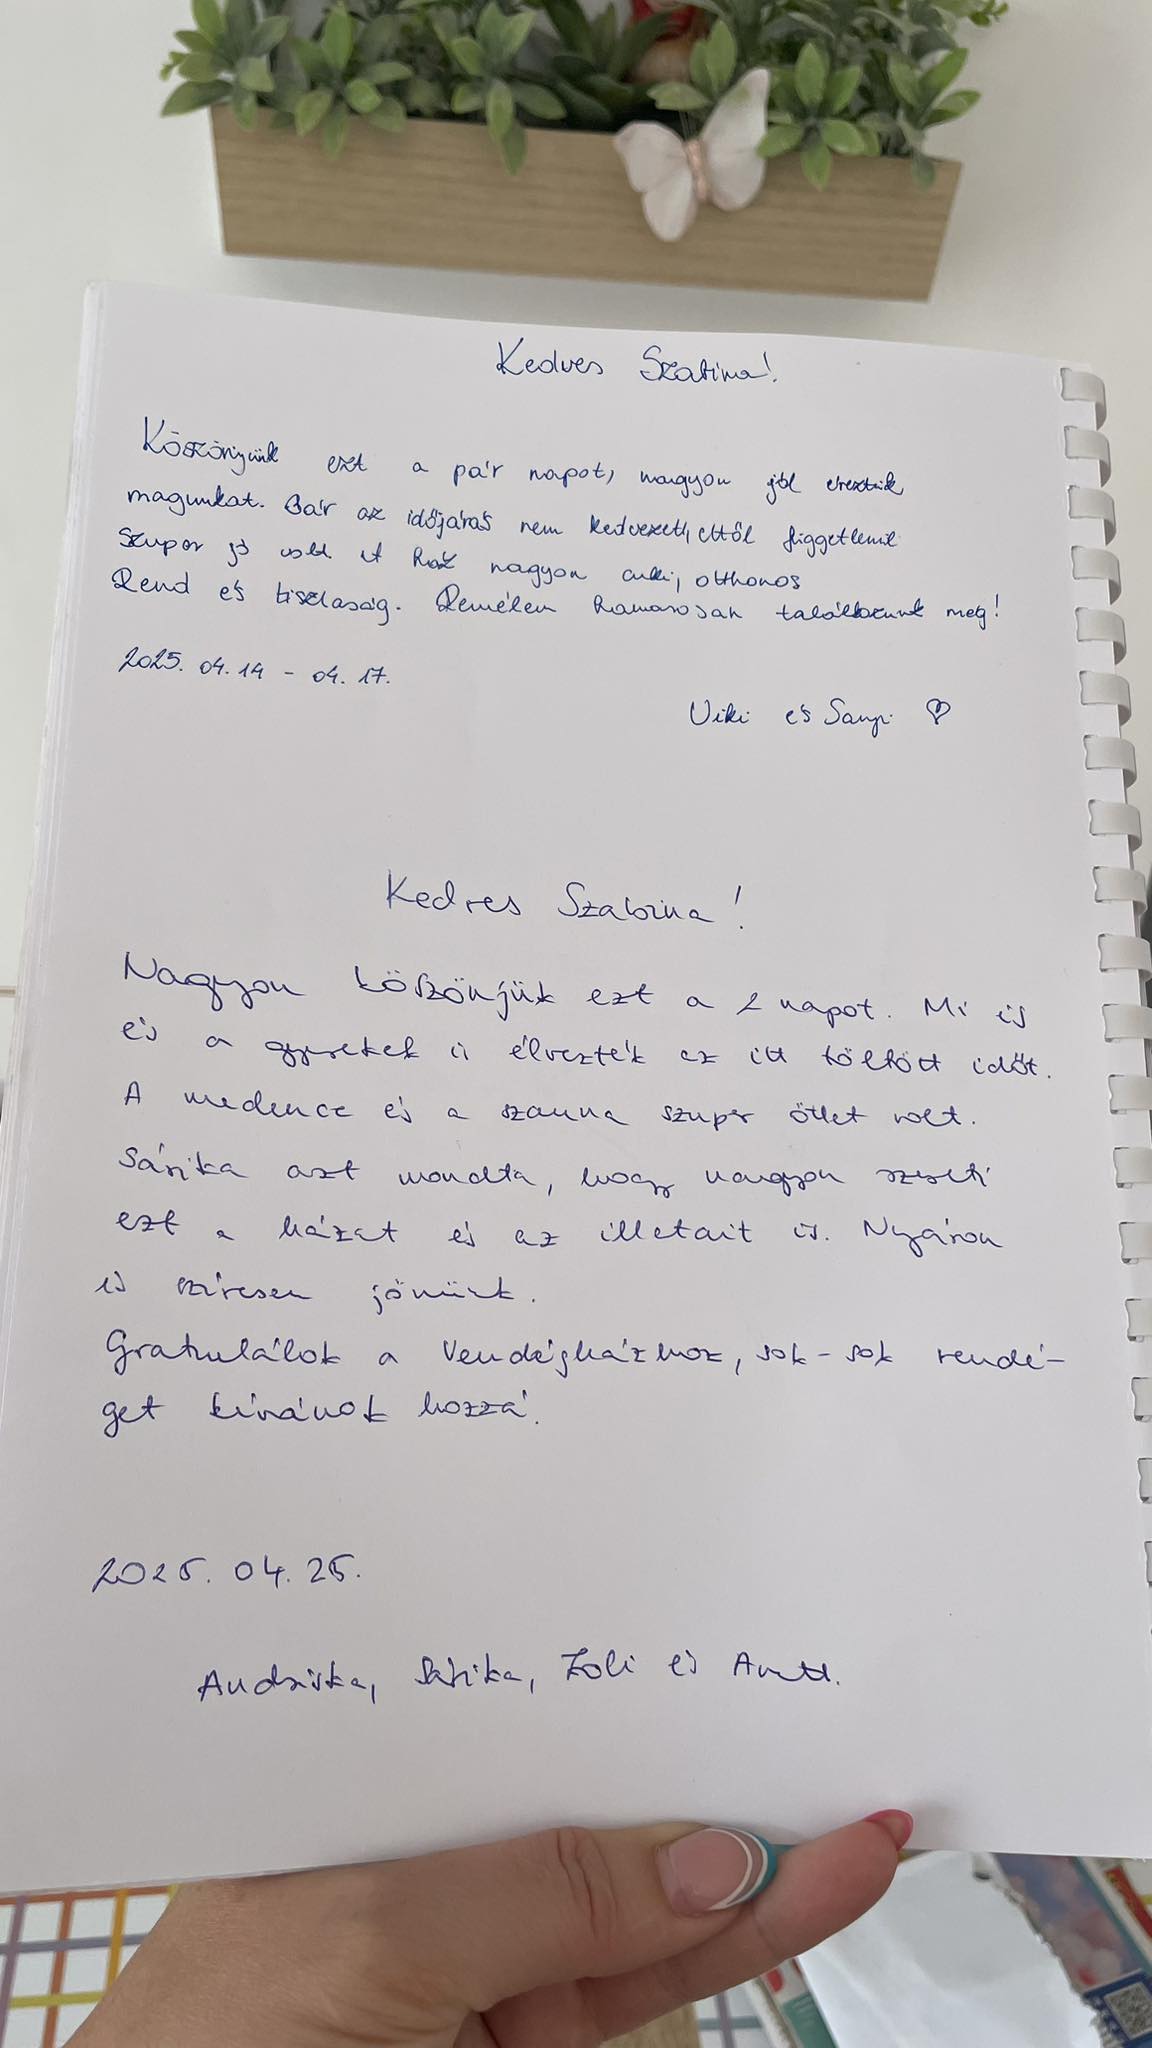 Kedves Szabina!
Köszönjünk ezt a pár napot, nagyon jól éreztük
magunkat. Bár az időjárás nem kedvezett, ettől függetlenül
szuper jó volt. A ház nagyon cuki, otthonos
Rend és tisztaság. Remélem hamarosan találkozunk meg!
2025. 04. 14 - 04. 17.
Viki és Sanyi ♡
Kedves Szabina!
Nagyon köszönjük ezt a 2 napot. Mi is
és a gyerekek is élvezték az itt töltött időt.
A medence és a szauna szuper ötlet volt.
Sárika azt mondta, hogy nagyon szereti
ezt a házat és az illatait is. Nyáron
is szívesen jönünk.
Gratulálok a Vendégházhoz, sok-sok vendé-
get kívánok hozzá.
2025. 04. 25.
Andriska, Sárika, Zoli és Anett.